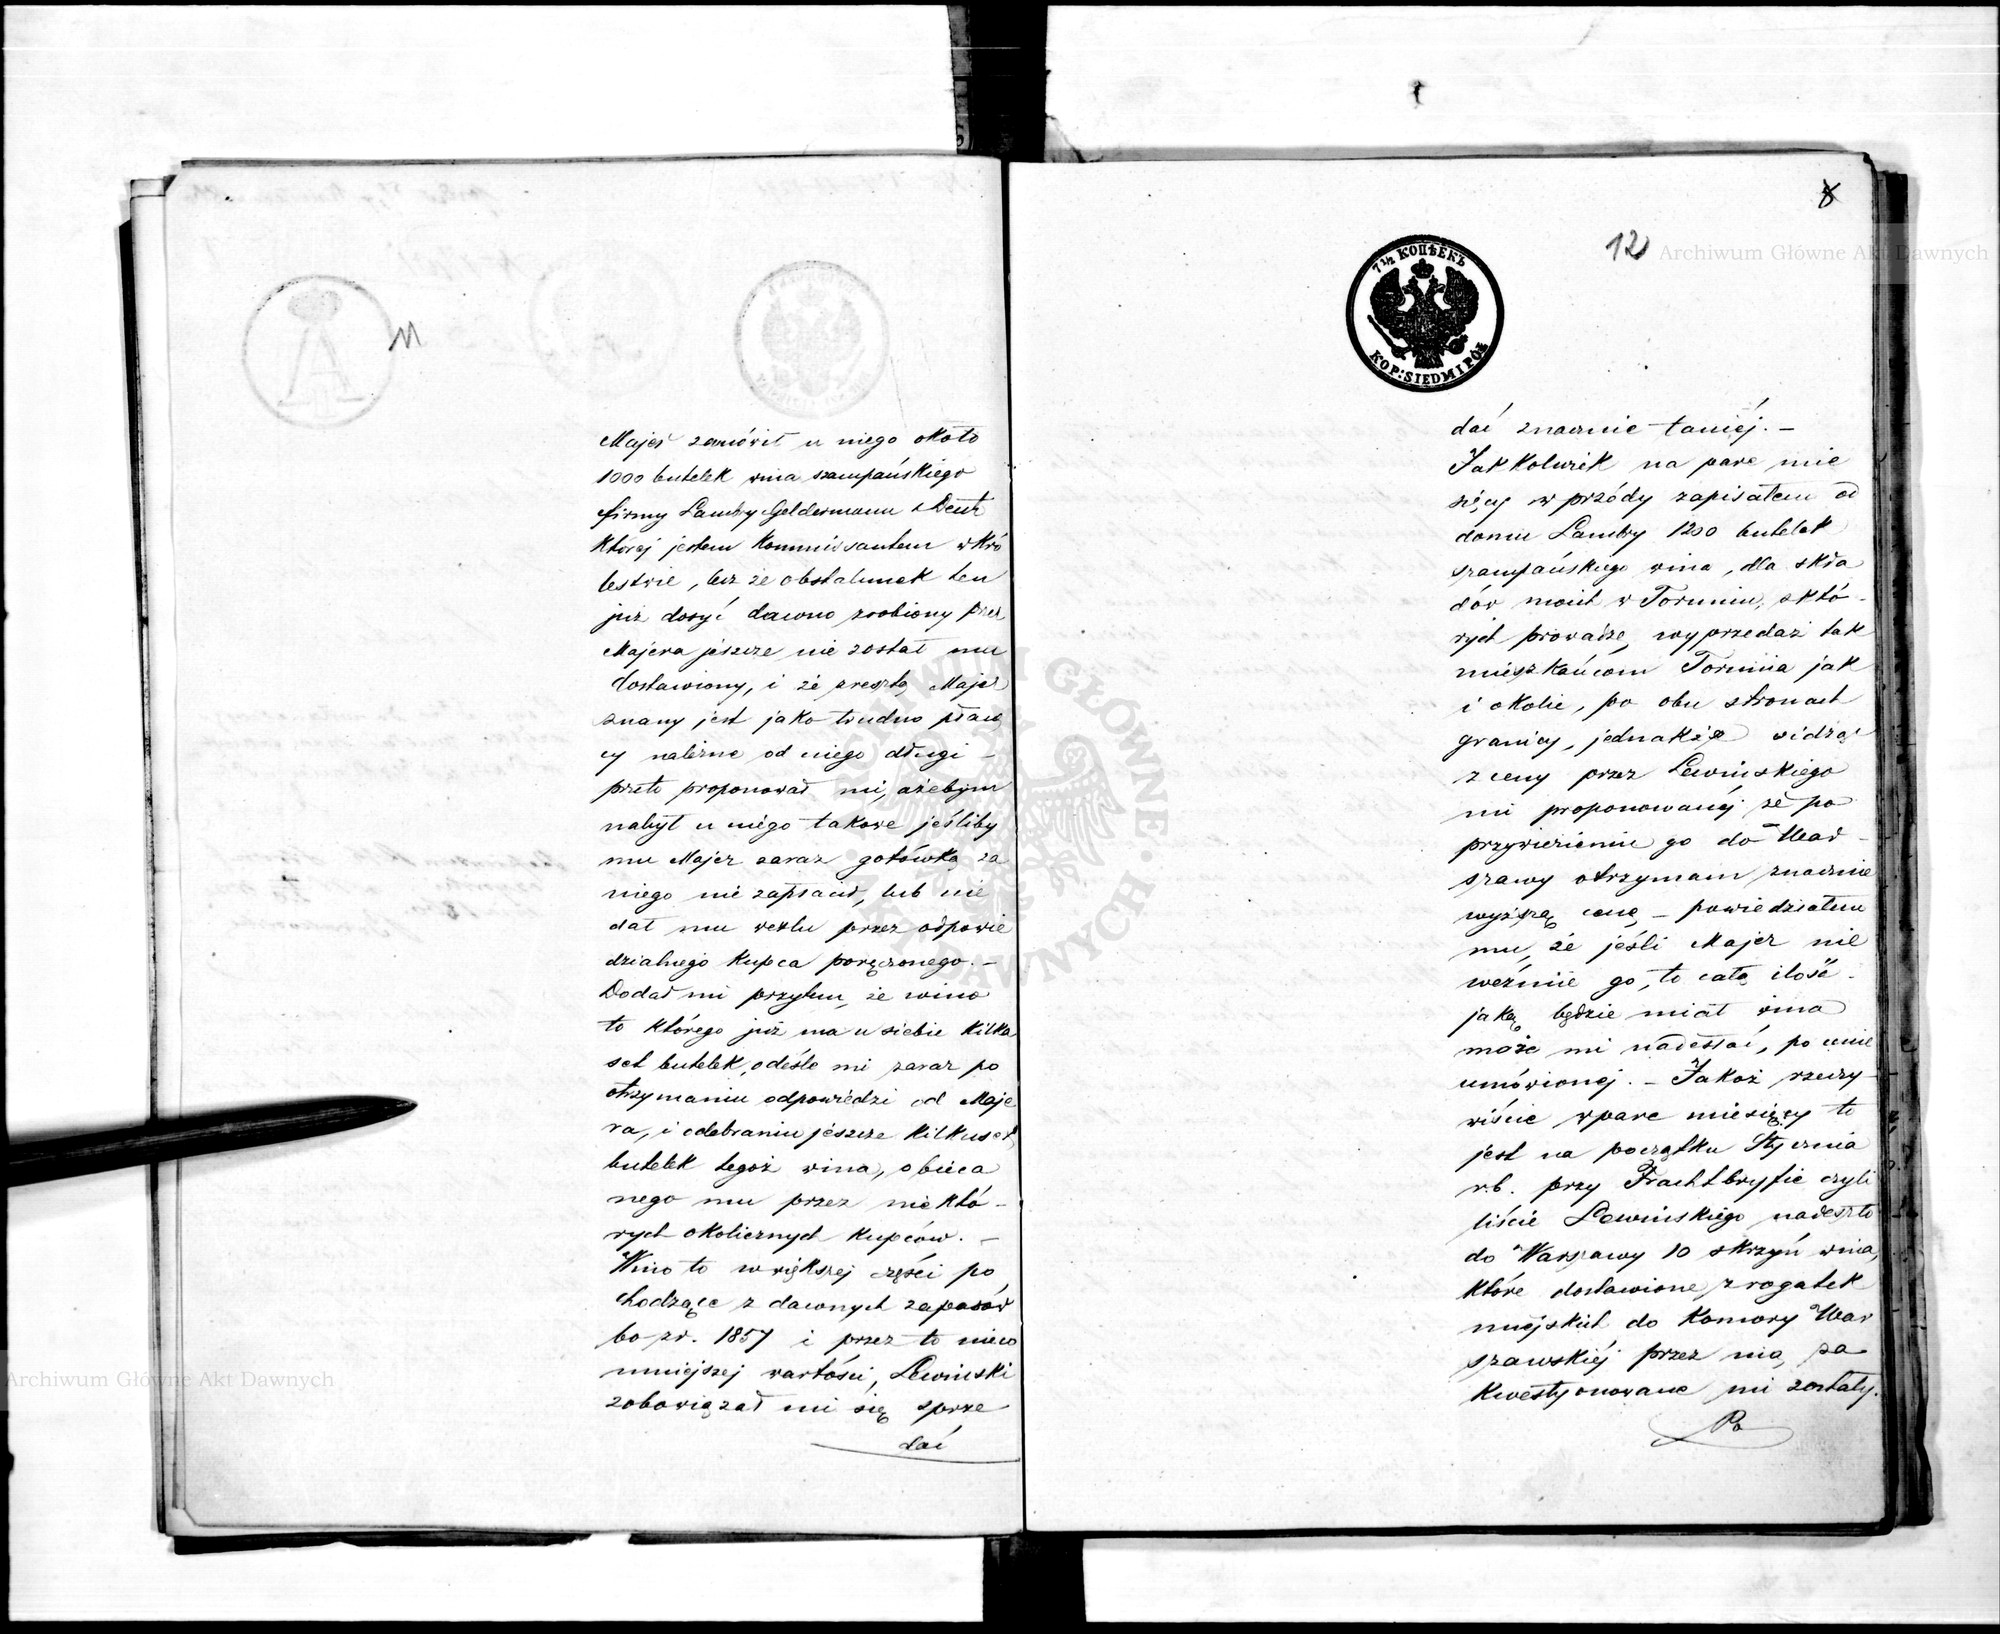 Majer zamówił u niego około
1000 butelek wina szampańskiego
firmy Lambry Geldermann & Deutz
której jestem Kommissantem w Kró
lestwie, lecz że obstalunek ten
już dosyć dawno zrobiony przez
Majera jeszcze nie został mu
dostawiony, i że zresztą Majer
znany jest jako trudno płacą
cy należne od niego długi –
przeto proponował mi, ażebym
nabył u niego takowe jeśliby
mu Majer zaraz gotówką za
niego nie zapłacił, lub nie
dał mu wexlu przez odpowie
dzialnego Kupca poręczonego. –
Dodał mi przytem, że wino
to którego już ma u siebie kilka
set butelek, odeśle mi zaraz po
otrzymaniu odpowiedzi od Maje
ra, i odebraniu jeszcze kilkuset
butelek tegoż wina, obieca
nego mu przez niektó-
rych okolicznych kupców. –
Wino to w większej części po
chodzące z dawnych zapasów
bo z r. 1857 i przez to nieco
mniejszej wartości, Lewinski
zobowiązał mi się sprze
dać
8
12
7 1/2 КОПѢЕКЪ
KOP: SIEDM I PÓŁ
dać znacznie taniéj. –
Jakkolwiek na parę mie
sięcy w przódy zapisałem od
domu Lambry 1200 butelek
szampańskiego wina, dla skła
dów moich w Toruniu, z któ-
rych prowadzę wyprzedaż tak
mieszkańcom Torunia jak
i okolic, po obu stronach
granicy, jednakże widząc
z ceny przez Lewińskiego
mi proponowanéj że po
przywiezieniu go do War-
szawy otrzymam znacznie
wyższą cenę – powiedziałem
mu, że jeśli Majer nie
weźmie go, to całą ilość
jaką będzie miał wina
może mi nadesłać, po cenie
umówionej. – Jakoż rzeczy-
wiście w parę miesięcy to
jest na początku Stycznia
r.b. przy Frachtbryfie czyli
liście Lewińskiego nadeszło
do Warszawy 10 skrzyń wina,
które dostawione z rogatek
miejskich do Komory War
szawskiéj przez nią za
kwestyonowane mi zostały.
Po
Archiwum Główne Akt Dawnych
Archiwum Główne Akt Dawnych
ARCHIWUM GŁÓWNE AKT DAWNYCH